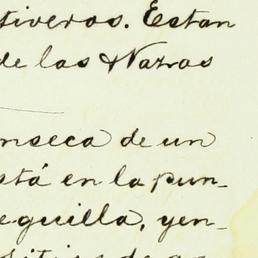 tiveros. Estan
de las Navas
nseca de un
stá en la pun-
eguilla, yen-